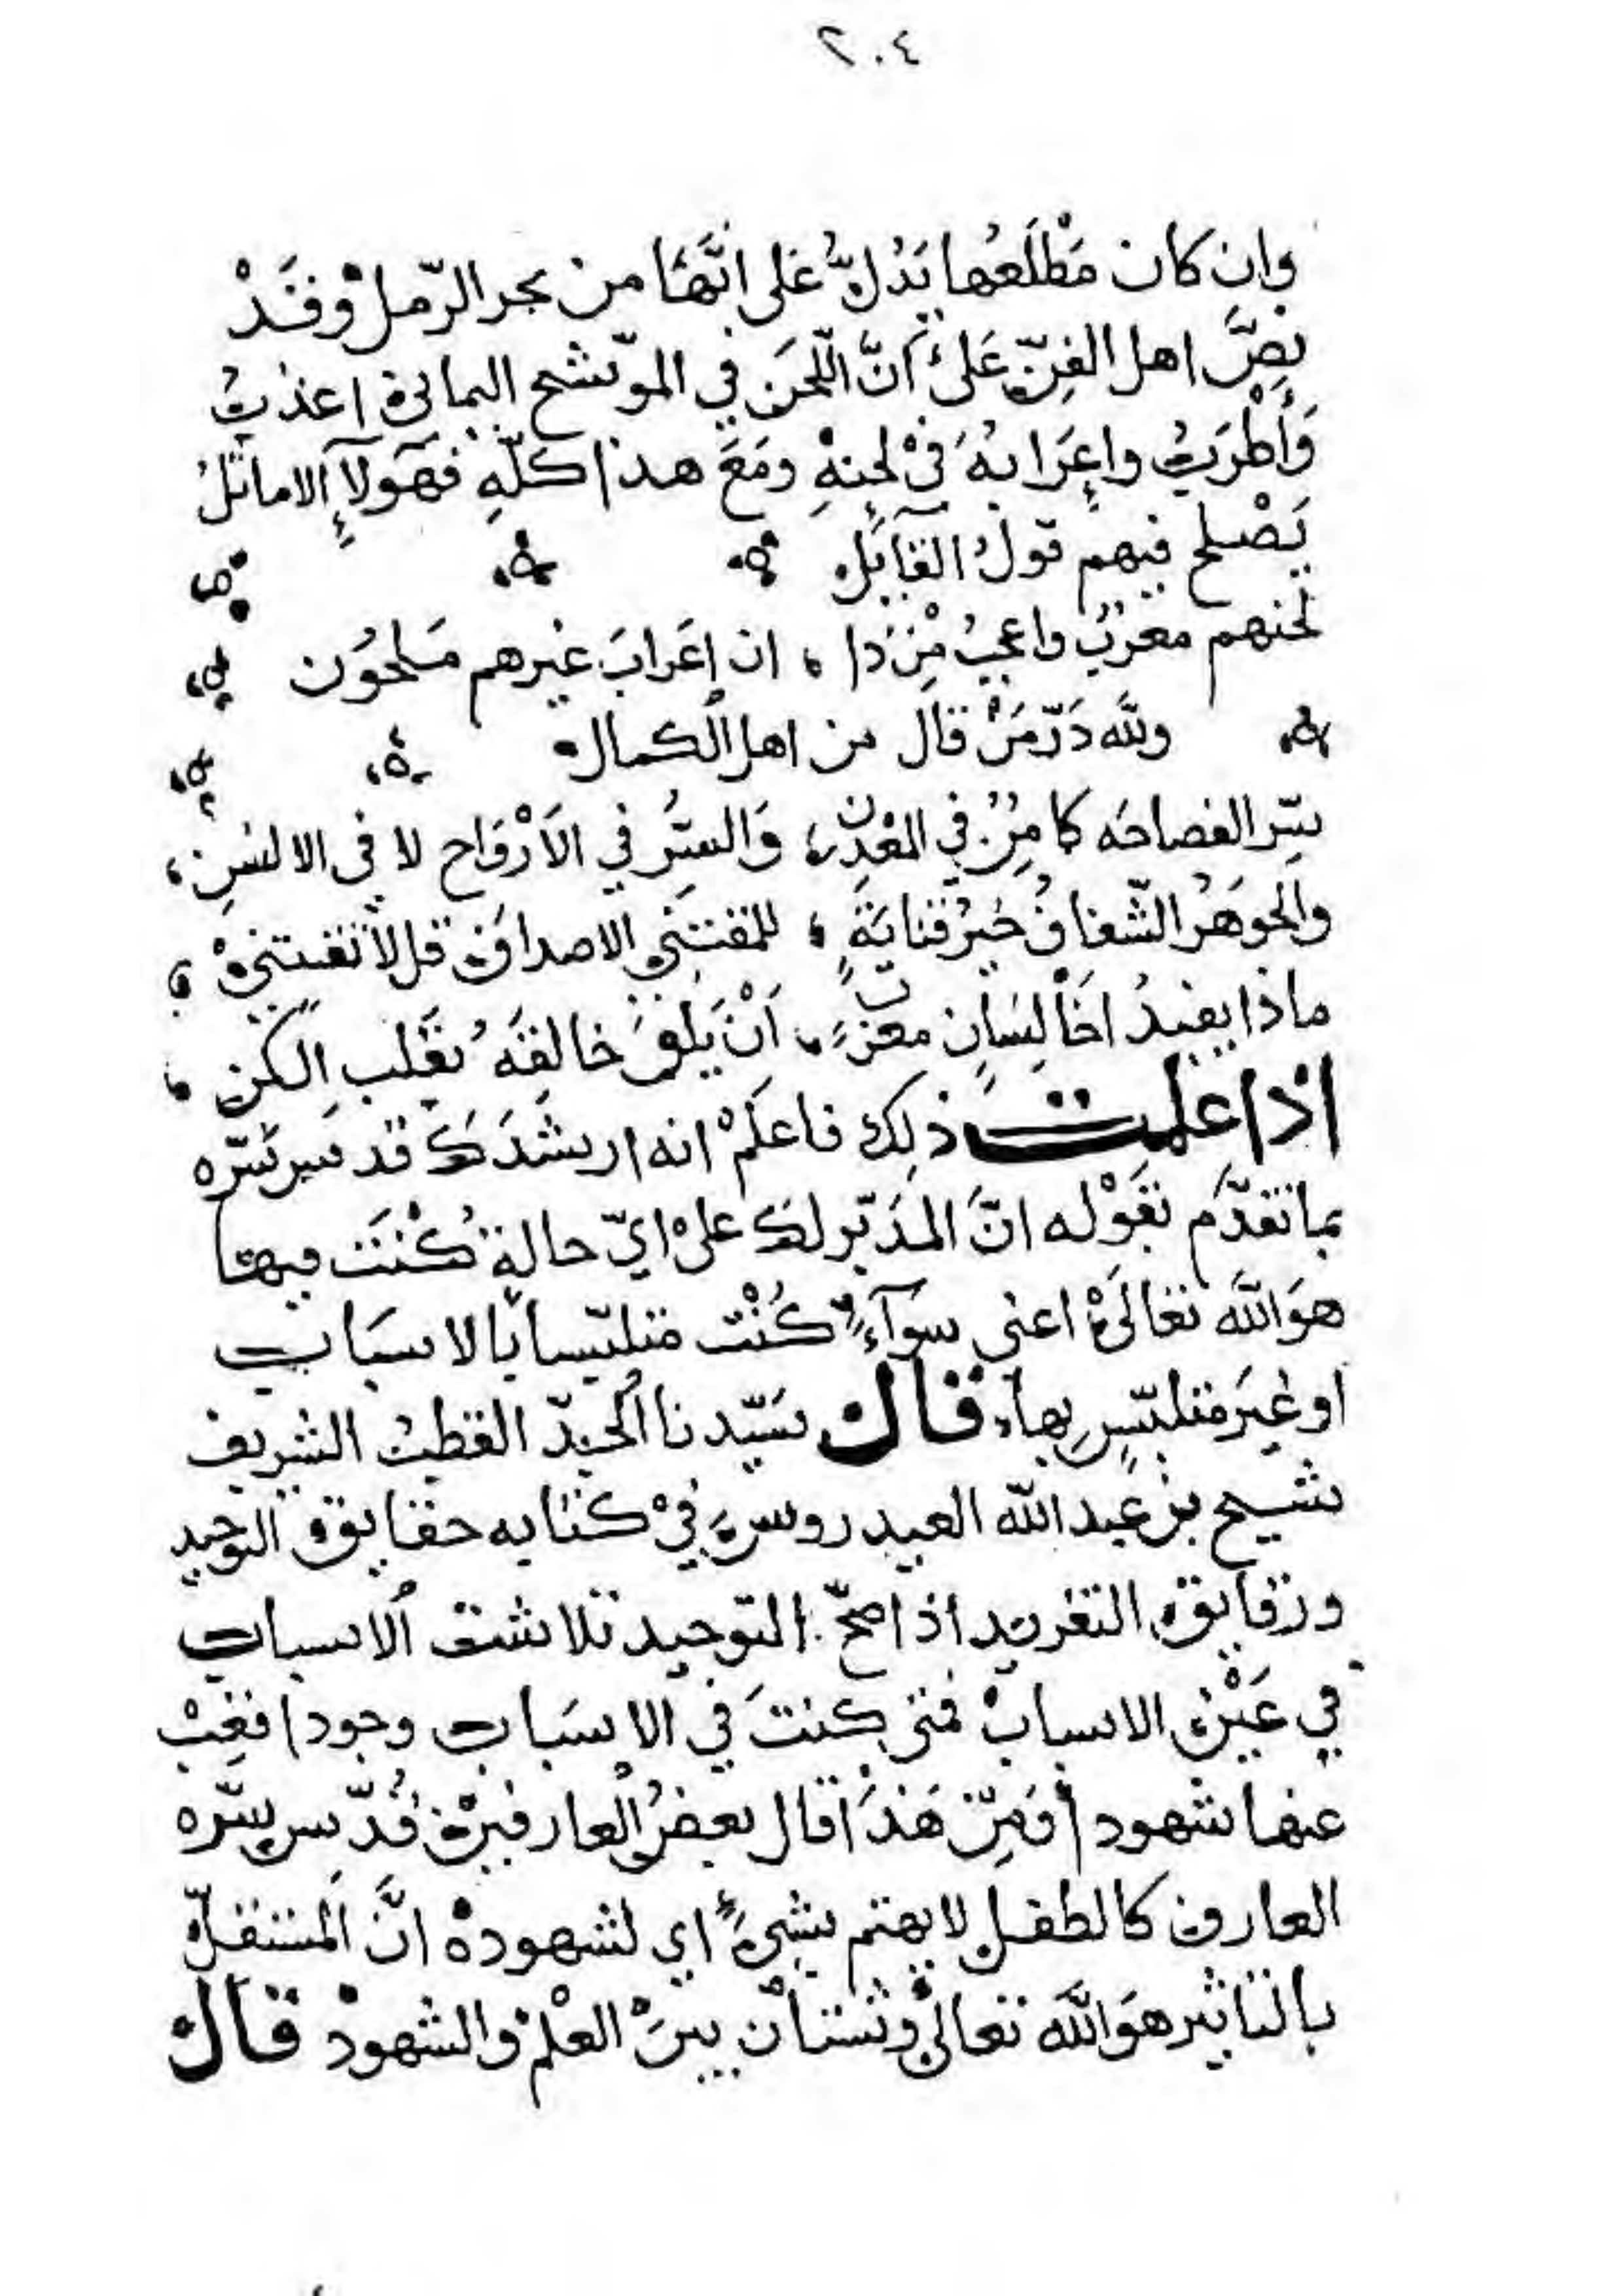 ٢٠٤
وان كان مَطْلَعُها يَدُلُّ عَلى انَّهَا من بحر الرّمل وَقَدْ
نصَّ اهل الفنّ عَلىٰ انَّ اللّحنَ في الموّشح اليمانى اعذبُ
وَأَطْرَبُ وإعرَابُهُ فىْ لحِنهِ ومَعَ هذا كلّهِ فهٰولآءِ الاماثلُ
يَصْلح فيهم قولُ القآيل
لحنهم معربٌ واعجبُ مْن ذا ، ان إعَرابَ غيرهم مَلحوُن
وللّه دَرّمَنْ قال من اهل الكمال
سّر الفصاحَه كامِنٌ في المعْدنِ ، وَالسّرُ في الاَرْوَاح لا فى الالسنِ ،
والجوهَرُ الشّفافُ خيرُ قنايَةٍ ، للمقتنيِ الاصدافَ قل لا تقتنىْ ،
ماذا يفيدُ اخَا لِسَانٍ معربٍ ، اَنْ يَلقَ خالقَهُ بقَلبٍ الكنِ ،
اذا علمت ذٰلِك فاعلَمْ انه ارشدَكَ قدس سّره
بما تقدّم بقَوْله انَّ المدَبّر لك علىٰ ايّ حالةٍ كُنْتَ فيها
هوَاللّه تعالىٰ اعنى سوَآءً كُنْت متلبّسا بالاسبَاب
او غيَر متلبّسٍ بها قال سَيّدنا الحبر القطبُ الشريف
شيخ بن عبد اللّه العيدروس فيْ كتابه حقايق التوحيد
ودقايق التفريد اذا صحّ التوحيد تلاشت الاسباب
في عَيْن الاسبابْ فمتى كنتَ في الاسبَاب وجودا فغِبْ
عنها شهودا وَمِنْ هَذَا قال بعضُ العارفيْن قُدّس سّره
العارف كالطفل لا يهتم بشىءٍ اي لشهودهْ انَّ المستقلّ
بالتاثير هوَاللّه تعالىْ وشتاْن بينَ العلْم والشهودْ قال